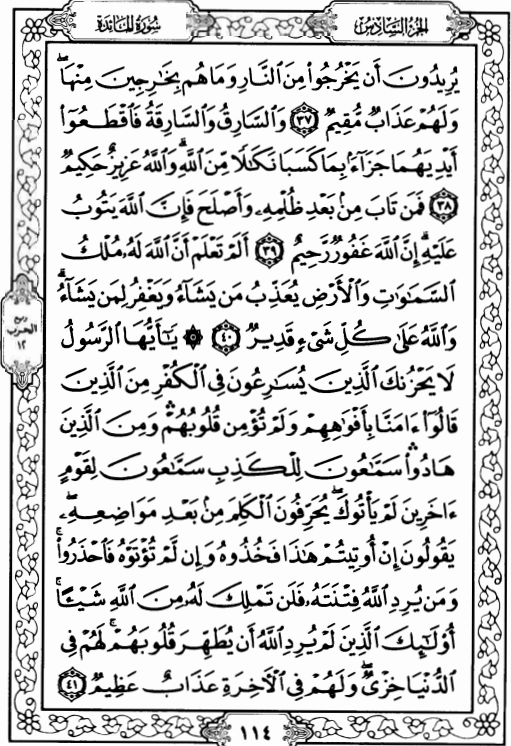 سُورَةُ المَائدَة
الجُزءُ السَّادِسُ
يُرِيدُونَ أَن يَخْرُجُوا۟ مِنَ ٱلنَّارِ وَمَا هُم بِخَٰرِجِينَ مِنْهَا ۖ
وَلَهُمْ عَذَابٌ مُّقِيمٌ ٣٧ وَٱلسَّارِقُ وَٱلسَّارِقَةُ فَٱقْطَعُوٓا۟
أَيْدِيَهُمَا جَزَآءًۢ بِمَا كَسَبَا نَكَٰلًا مِّنَ ٱللَّهِ ۗ وَٱللَّهُ عَزِيزٌ حَكِيمٌ
٣٨ فَمَن تَابَ مِنۢ بَعْدِ ظُلْمِهِۦ وَأَصْلَحَ فَإِنَّ ٱللَّهَ يَتُوبُ
عَلَيْهِ ۗ إِنَّ ٱللَّهَ غَفُورٌ رَّحِيمٌ ٣٩ أَلَمْ تَعْلَمْ أَنَّ ٱللَّهَ لَهُۥ مُلْكُ
ٱلسَّمَٰوَٰتِ وَٱلْأَرْضِ يُعَذِّبُ مَن يَشَآءُ وَيَغْفِرُ لِمَن يَشَآءُ ۗ
وَٱللَّهُ عَلَىٰ كُلِّ شَىْءٍ قَدِيرٌ ٤٠ ۞ يَٰٓأَيُّهَا ٱلرَّسُولُ
لَا يَحْزُنكَ ٱلَّذِينَ يُسَٰرِعُونَ فِى ٱلْكُفْرِ مِنَ ٱلَّذِينَ
قَالُوٓا۟ ءَامَنَّا بِأَفْوَٰهِهِمْ وَلَمْ تُؤْمِن قُلُوبُهُمْ ۛ وَمِنَ ٱلَّذِينَ
هَادُوا۟ ۛ سَمَّٰعُونَ لِلْكَذِبِ سَمَّٰعُونَ لِقَوْمٍ
ءَاخَرِينَ لَمْ يَأْتُوكَ ۖ يُحَرِّفُونَ ٱلْكَلِمَ مِنۢ بَعْدِ مَوَاضِعِهِۦ ۖ
يَقُولُونَ إِنْ أُوتِيتُمْ هَٰذَا فَخُذُوهُ وَإِن لَّمْ تُؤْتَوْهُ فَٱحْذَرُوا۟ ۚ
وَمَن يُرِدِ ٱللَّهُ فِتْنَتَهُۥ فَلَن تَمْلِكَ لَهُۥ مِنَ ٱللَّهِ شَيْـًٔا ۚ
أُو۟لَٰٓئِكَ ٱلَّذِينَ لَمْ يُرِدِ ٱللَّهُ أَن يُطَهِّرَ قُلُوبَهُمْ ۚ لَهُمْ فِى
ٱلدُّنْيَا خِزْىٌ ۖ وَلَهُمْ فِى ٱلْءَاخِرَةِ عَذَابٌ عَظِيمٌ ٤١
ربع
الحزب
١٢
١١٤